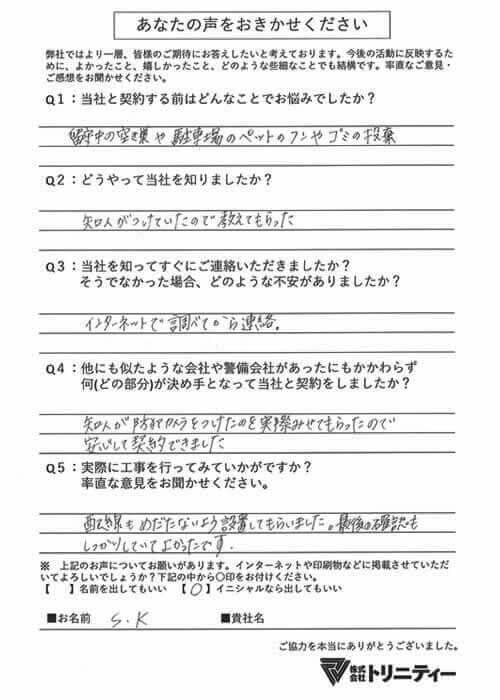 あなたの声をおきかせください
弊社ではより一層、皆様のご期待にお答えしたいと考えております。今後の活動に反映するた
めに、よかったこと、嬉しかったこと、どのような些細なことでも結構です。率直なご意見・
ご感想をお聞かせください。
Q1:当社と契約する前はどんなことでお悩みでしたか?
留守中の空き巣や駐車場のペットのフンやゴミの投棄
Q2:どうやって当社を知りましたか?
知人がつけていたので教えてもらった
Q3:当社を知ってすぐにご連絡いただきましたか?
そうでなかった場合、どのような不安がありましたか?
インターネットで調べてから連絡。
Q4:他にも似たような会社や警備会社があったにもかかわらず
何(どの部分)が決め手となって当社と契約をしましたか?
知人が防犯カメラをつけたのを実際みせてもらったので
安心して契約できました
Q5:実際に工事を行ってみていかがですか?
率直な意見をお聞かせください。
配線もめだたないよう設置してもらいました。最後の確認も
しっかりしていてよかったです.
※ 上記のお声についてお願いがあります。インターネットや印刷物などに掲載させていただ
いてよろしいでしょうか?下記の中から〇印をお付けください。
【 】名前を出してもいい 【〇】イニシャルなら出してもいい
■お名前 S.K ■貴社名
ご協力を本当にありがとうございました。
株式会社トリニティー